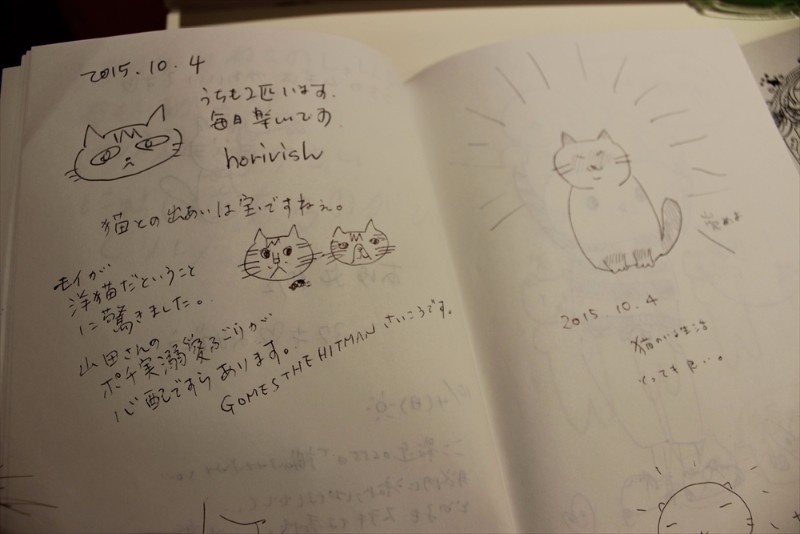 2015.10.4
うちも2匹います.
毎日楽しいです.
horirish
猫との出あいは宝ですねぇ。
モイが
洋猫だということ
に驚きました。
山田さんの
ポチ実溺愛ぶりが
心配ですらあります。
GOMES THE HITMAN さいこうです。
2015.10.4
猫のいる生活
とっても良い…。